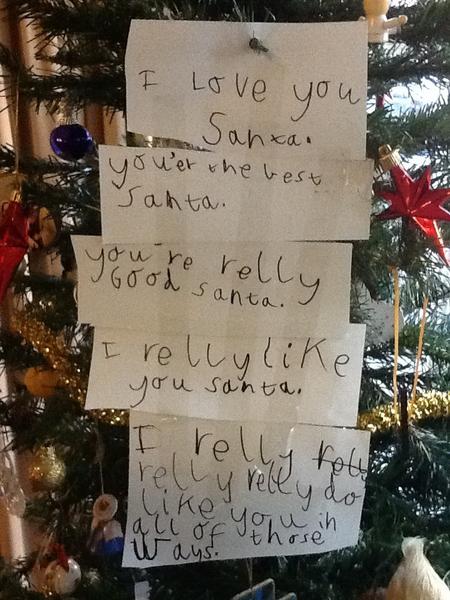 I Love you
Santa.
you'er the best
Santa.
you're relly
Good santa.
I relly like
you santa.
I relly
relly relly do
like you in
all of those
Ways.